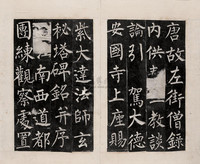 唐故左街僧錄
内供教談
論引駕大德
安國寺上座賜
紫大達法師玄
秘塔碑銘并序
南西道都
團練觀察處置